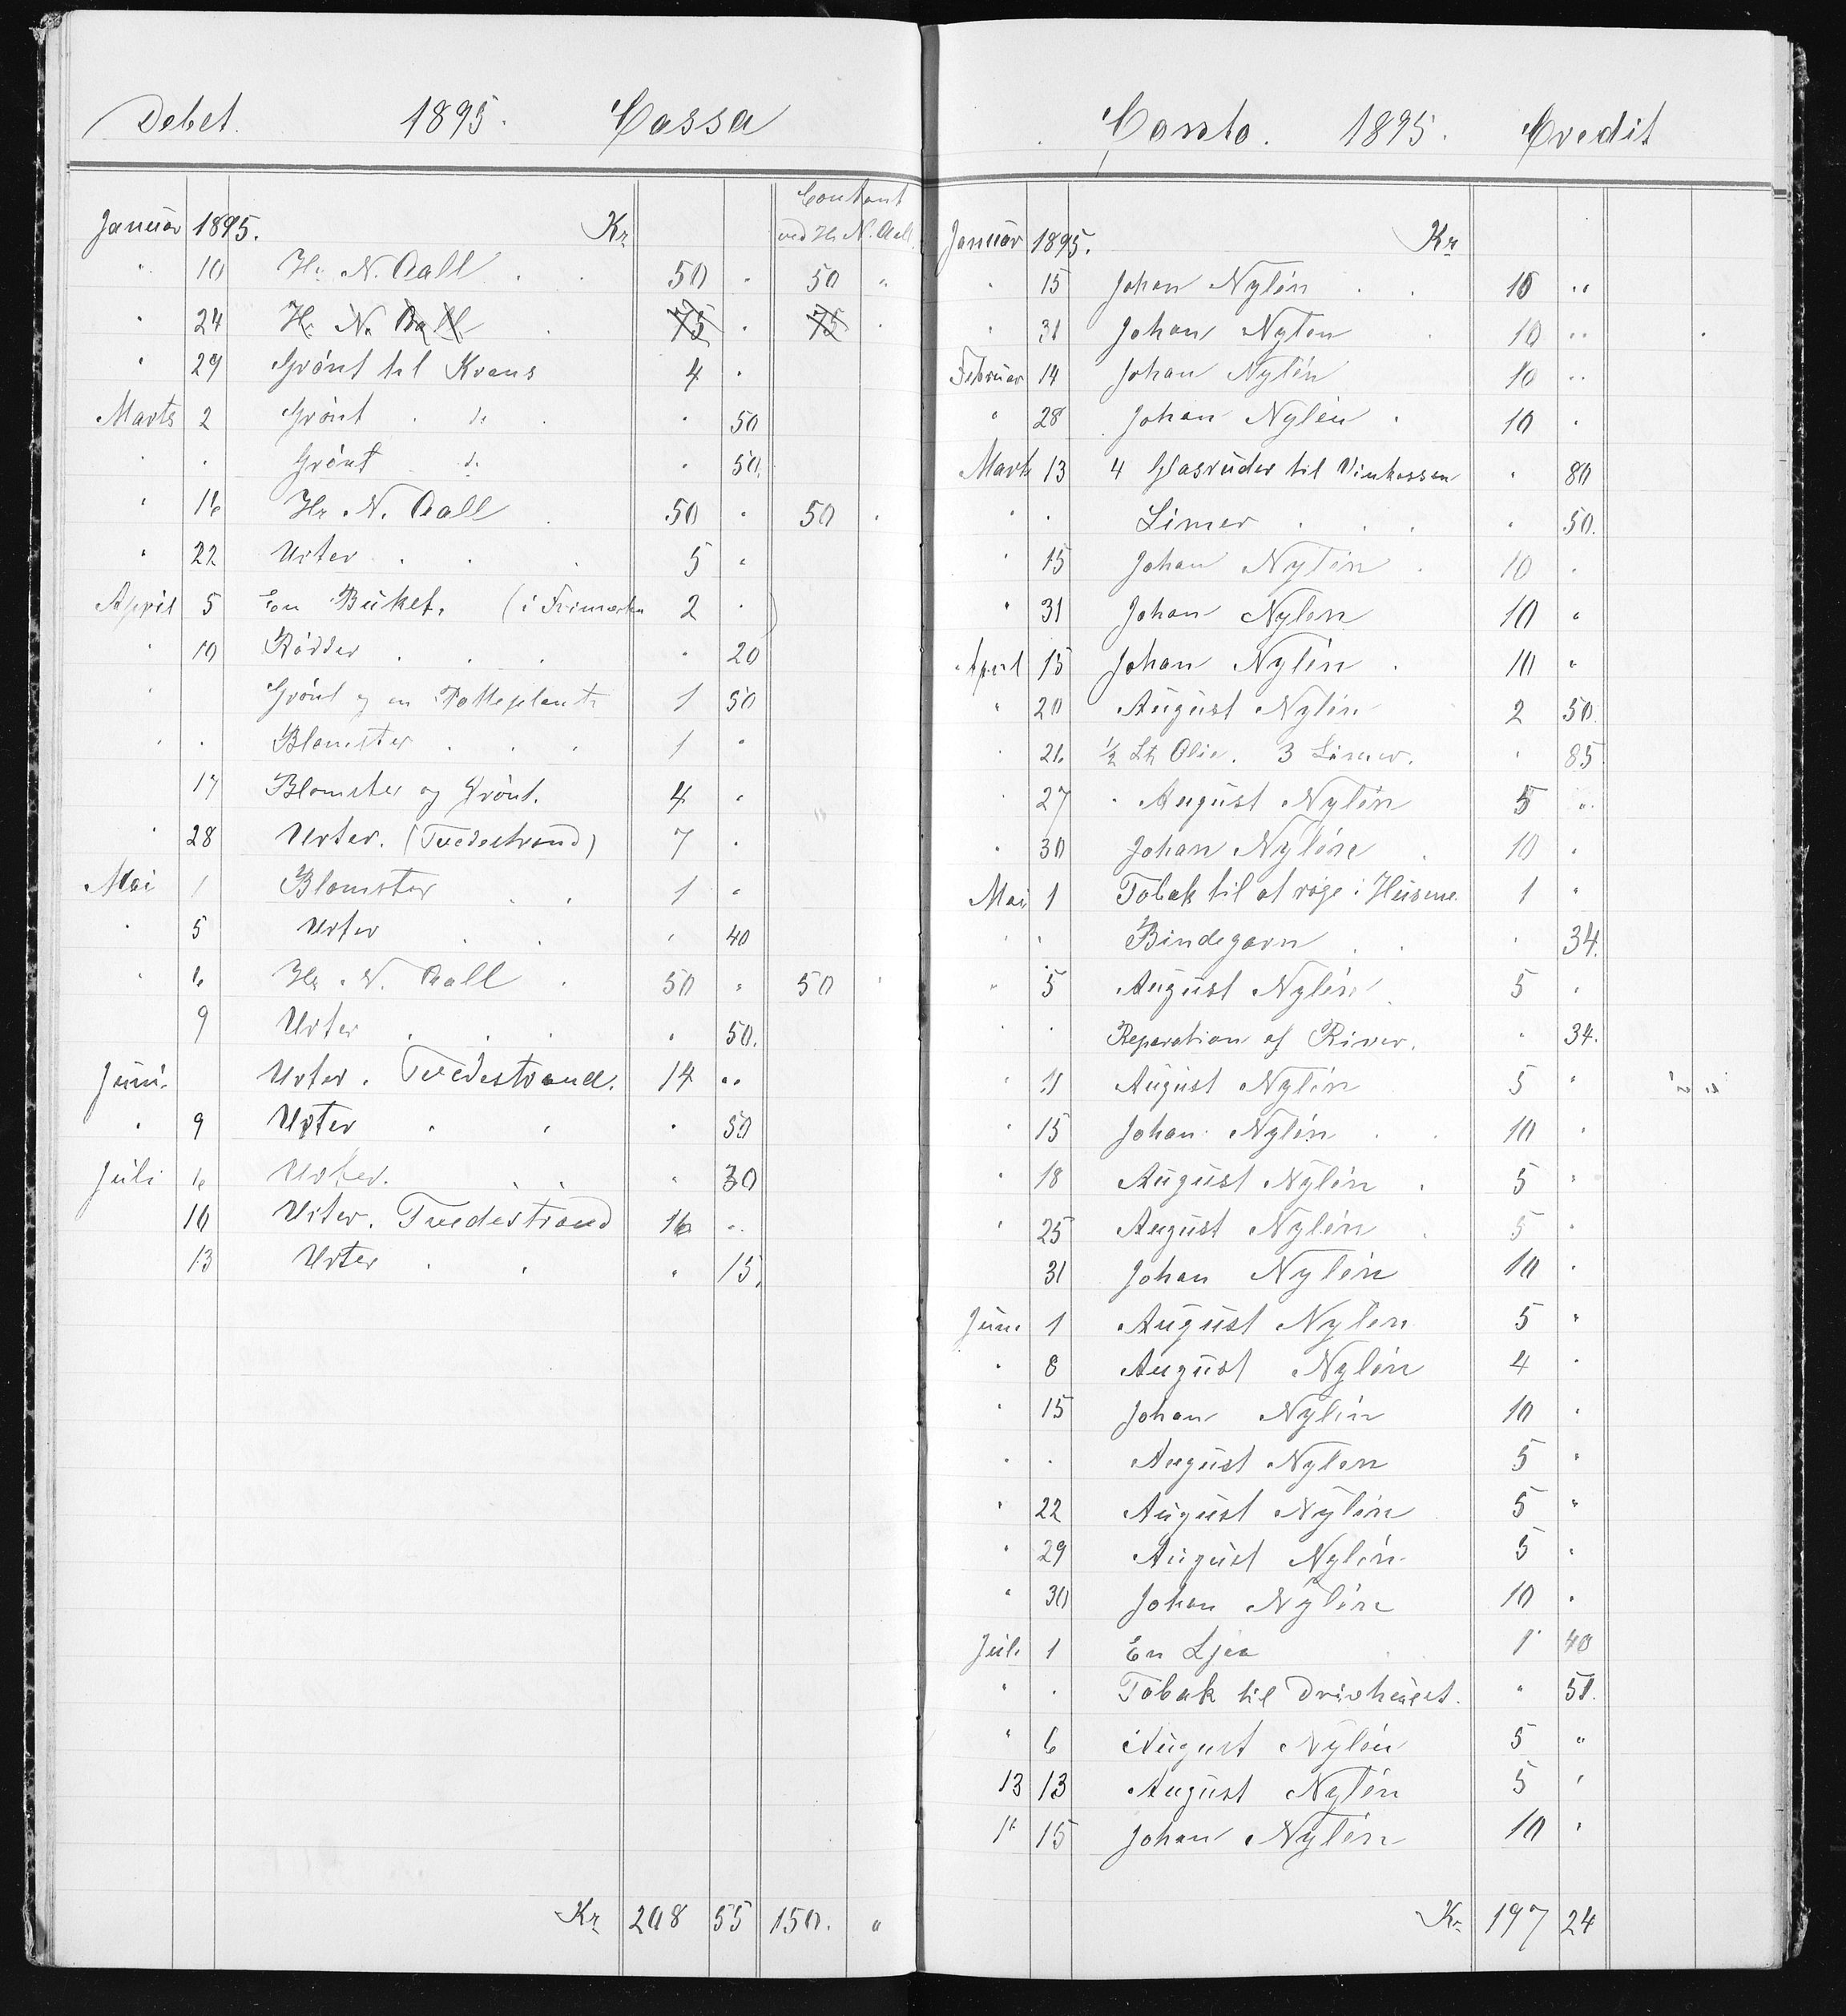 Debet. 1895. Cassa
Contant
Januar 1895. Kr ved Hr N. Aall
" 10 Hr N. Aall 50 " 50 "
" 24 Hr N. Aall 75 " 75 "
" 29 Grönt til Krans 4 "
Marts 2 Grönt do " 50
" " Grönt do " 50
" 16 Hr N. Aall 50 " 50 "
" 22 Urter 5 "
April 5 En Buket. (i Frimerker 2 " )
" 10 Rödder " 20
" Grönt og en Potteplante 1 50
" " Blomster 1 "
17 Blomster og Grönt. 4 "
" 28 Urter. (Tvedestrand) 7 "
Mai 1 Blomster 1 "
" 5 Urter " 40
" 6 Hr N. Aall 50 " 50 "
9 Urter " 50.
Juni. Urter. Tvedestrand. 14 "
" 9 Urter " 50
Juli 6 Urter. " 30
10 Urter. Tvedestrand 16 "
13 Urter " 15.
Kr 208 55 150. "
Conto. 1895. Credit
Januar 1895. Kr
" 15 Johan Nylén 10 "
" 31 Johan Nylen 10 "
Februar 14 Johan Nylén 10 "
" 28 Johan Nylén 10 "
Marts 13 4 Glasruder til Vinkassen " 80
" " Limer " 50.
" 15 Johan Nylén 10 "
" 31 Johan Nylen 10 "
April 15 Johan Nylén 10 "
" 20 August Nylén 2 50.
" 26 ½ Lt Olie. 3 Limer. " 85
" 27 August Nylén 5 "
" 30 Johan Nylén 10 "
Mai 1 Tobak til at röge i Husene 1 "
" " Bindegarn " 34.
" 5 August Nylén 5 "
" " Reparation af River. " 34.
" 11 August Nylén 5 "
" 15 Johan Nylén 10 "
" 18 August Nylén 5 "
" 25 August Nylén 5 "
31 Johan Nylén 10 "
Juni 1 August Nylen 5 "
" 8 August Nylén 4 "
" 15 Johan Nylén 10 "
" " August Nylen 5 "
" 22 August Nylén 5 "
" 29 August Nylén 5 "
" 30 Johan Nylén 10 "
Juli 1 En Ljaa 1 40
" " Tobak til Drivhuset. " 51.
" 6 August Nylén 5 "
13 13 August Nylén 5 "
15 Johan Nylén 10 "
Kr 197 24